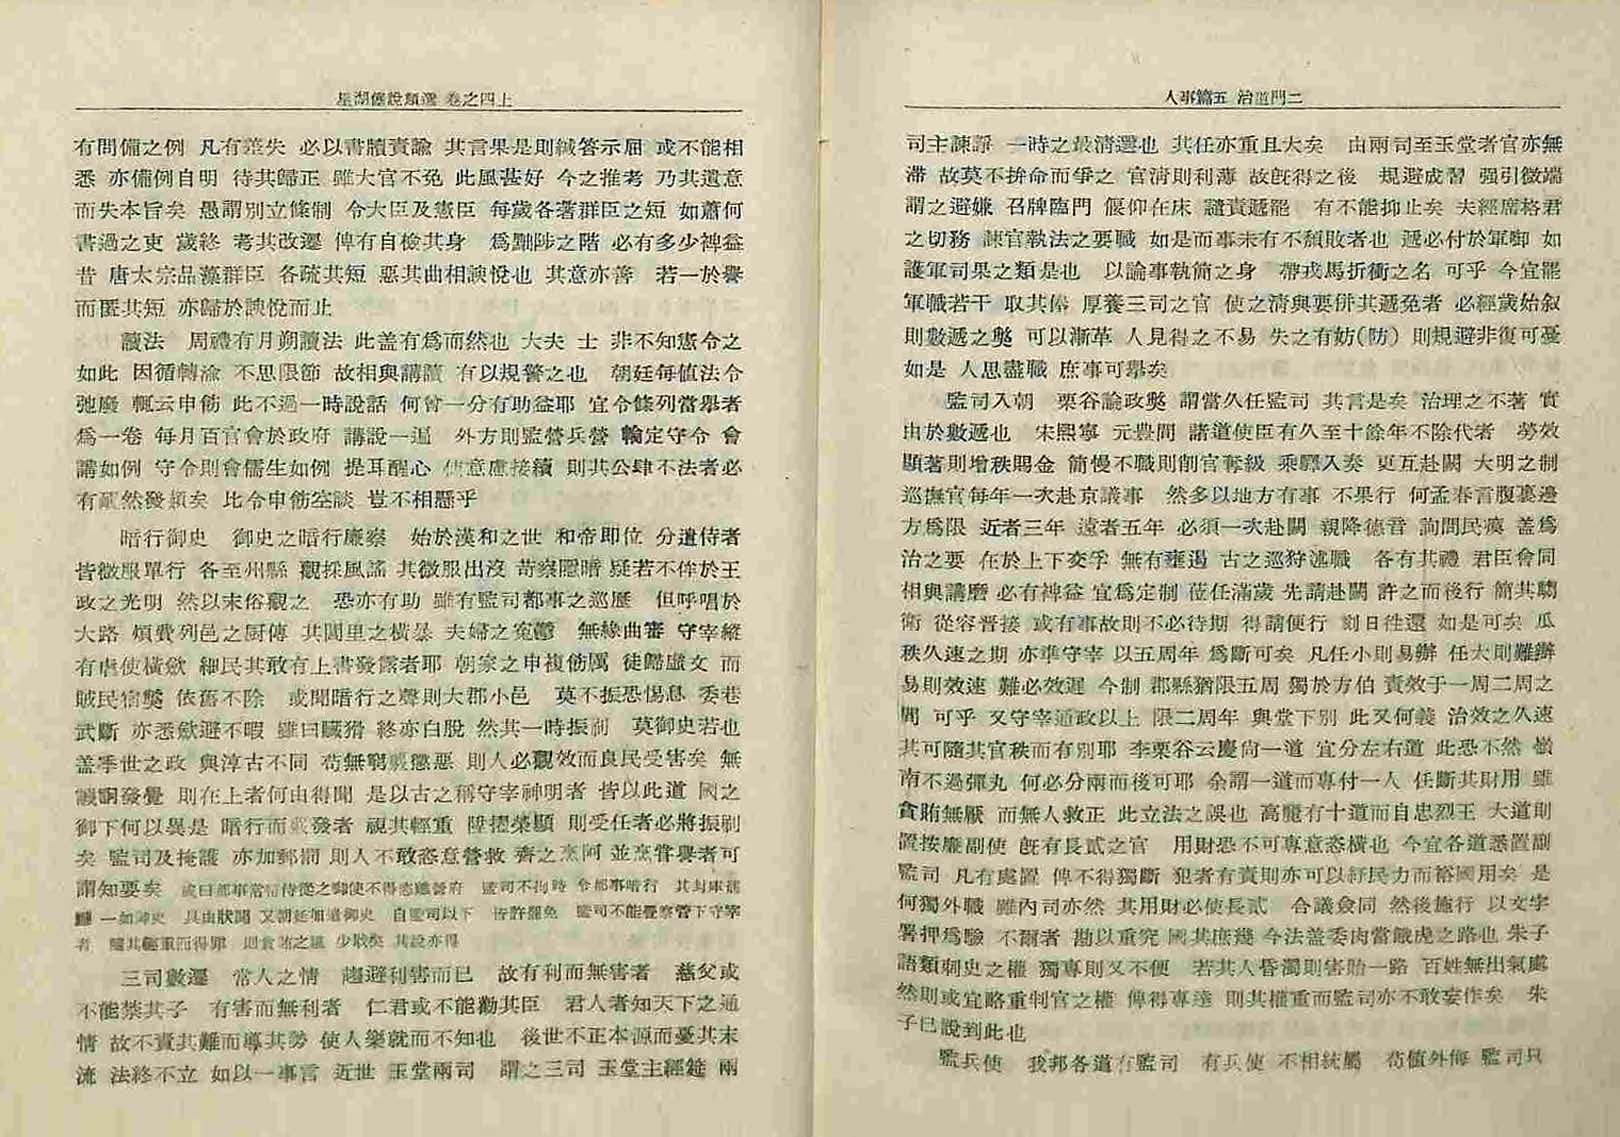 星湖僿說類選 卷之四上
有問備之例 凡有差失 必以書牘責諭 其言果是則緘答示屈 或不能相
悉 亦備例自明 待其歸正 雖大官不免 此風甚好 今之推考 乃其遺意
而失本旨矣 愚謂別立條制 令大臣及憲臣 每歲各著群臣之短 如蕭何
書過之吏 歲終 考其改遷 俾有自檢其身 爲黜陟之階 必有多少裨益
昔 唐太宗品藻群臣 各疏其短 惡其曲相諛悅也 其意亦善 若一於譽
而匿其短 亦歸於諛悅而止
讀法 周禮有月朔讀法 此盖有爲而然也 大夫 士 非不知憲令之
如此 因循轉渝 不思限節 故相與講讀 有以規警之也 朝廷每値法令
弛廢 輒云申飭 此不過一時說話 何曾一分有助益耶 宜令條列當擧者
爲一卷 每月百官會於政府 講說一遍 外方則監營兵營 輪定守令 會
講如例 守令則會儒生如例 提耳醒心 使意慮接續 則其公肆不法者必
有靦然發顙矣 比令申飭空談 豈不相懸乎
暗行御史 御史之暗行廉察 始於漢和之世 和帝即位 分遣侍者
皆微服單行 各至州縣 觀採風謠 其微服出沒 苛察隱暗 疑若不侔於王
政之光明 然以末俗觀之 恐亦有助 雖有監司都事之巡歷 但呼唱於
大路 煩費列邑之厨傳 其閭里之橫暴 夫婦之寃鬱 無緣曲審 守宰縱
有虐使橫斂 細民其敢有上書發露者耶 朝家之申複飭厲 徒歸虛文 而
賊民宿弊 依舊不除 或聞暗行之聲則大郡小邑 莫不振恐惕息 委巷
武斷 亦悉歛避不暇 雖曰贓猾 終亦白脫 然其一時振刷 莫御史若也
盖季世之政 與淳古不同 苟無窮覈懲惡 則人必觀效而良民受害矣 無
譏詗發覺 則在上者何由得聞 是以古之稱守宰神明者 皆以此道 國之
御下何以異是 暗行而戱發者 視其輕重 陞擢榮顯 則受任者必將振刷
矣 監司及掩護 亦加郵罰 則人不敢恣意營救 齊之烹阿 並烹甞譽者可
謂知要矣 或曰都事常帶侍從之御使不得恣雖營府 監司不拘時 令都事暗行 其封庫
一如御史 具由狀聞 又朝廷加遣御史 自監司以下 皆許罷免 監司不能覺察管下守宰
者 隨其輕重而得罪 則貪賂之風 少戢矣 其說亦得
三司數遷 常人之情 趨避利害而已 故有利而無害者 慈父或
不能禁其子 有害而無利者 仁君或不能勸其臣 君人者知天下之通
情 故不責其難而導其勢 使人樂就而不知也 後世不正本源而憂其末
流 法終不立 如以一事言 近世 玉堂兩司 謂之三司 玉堂主經筵 兩
人事篇五 治道門二
司主諫諍 一時之最淸選也 其任亦重且大矣 由兩司至玉堂者官亦無
滯 故莫不拚命而爭之 官淸則利薄 故旣得之後 規避成習 强引微端
謂之避嫌 召牌臨門 偃仰在床 譴責遞罷 有不能抑止矣 夫經席格君
之切務 諫官執法之要職 如是而事未有不頹敗者也 遞必付於軍啣 如
護軍司果之類是也 以論事執簡之身 帶戎馬折衝之名 可乎 今宜罷
軍職若干 取其俸 厚養三司之官 使之淸與要併其遞免者 必經歲始叙
則數遞之弊 可以漸革 人見得之不易 失之有妨(防) 則規避非復可憂
如是 人思盡職 庶事可擧矣
監司入朝 栗谷論政弊 謂當久任監司 其言是矣 治理之不著 實
由於數遞也 宋熙寧 元豊間 諸道使臣有久至十餘年不除代者 勞效
顯著則增秩賜金 簡慢不職則削官奪級 乘驛入奏 更互赴闕 大明之制
巡撫官每年一次赴京議事 然多以地方有事 不果行 何孟春言腹裏邊
方爲限 近者三年 遠者五年 必須一次赴闕 親降德音 詢問民瘼 盖爲
治之要 在於上下交孚 無有壅遏 古之巡狩述職 各有其禮 君臣會同
相與講磨 必有裨益 宜爲定制 莅任滿歲 先請赴闕 許之而後行 簡其騶
衛 從容晋接 或有事故則不必待期 得請便行 刻日徃還 如是可矣 瓜
秩久速之期 亦準守宰 以五周年 爲斷可矣 凡任小則易辦 任大則難辦
易則效速 難必效遲 今制 郡縣猶限五周 獨於方伯 責效于一周二周之
間 可乎 又守宰通政以上 限二周年 與堂下別 此又何義 治效之久速
其可隨其官秩而有別耶 李栗谷云慶尙一道 宜分左右道 此恐不然 嶺
南不過彈丸 何必分兩而後可耶 余謂一道而專付一人 任斷其財用 雖
貪賄無厭 而無人救正 此立法之誤也 高麗有十道而自忠烈王 大道則
置按廉副使 旣有長貳之官 用財恐不可專意恣橫也 今宜各道悉置副
監司 凡有處置 俾不得獨斷 犯者有責則亦可以紓民力而裕國用矣 是
何獨外職 雖內司亦然 其用財必使長貳 合議僉同 然後施行 以文字
署押爲驗 不爾者 勘以重究 國其庶幾 今法盖委肉當餓虎之路也 朱子
語類刺史之權 獨專則又不便 若其人昏濁則害貽一路 百姓無出氣處
然則或宜略重判官之權 俾得專達 則其權重而監司亦不敢妄作矣 朱
子已說到此也
監兵使 我邦各道有監司 有兵使 不相統屬 苟値外侮 監司只